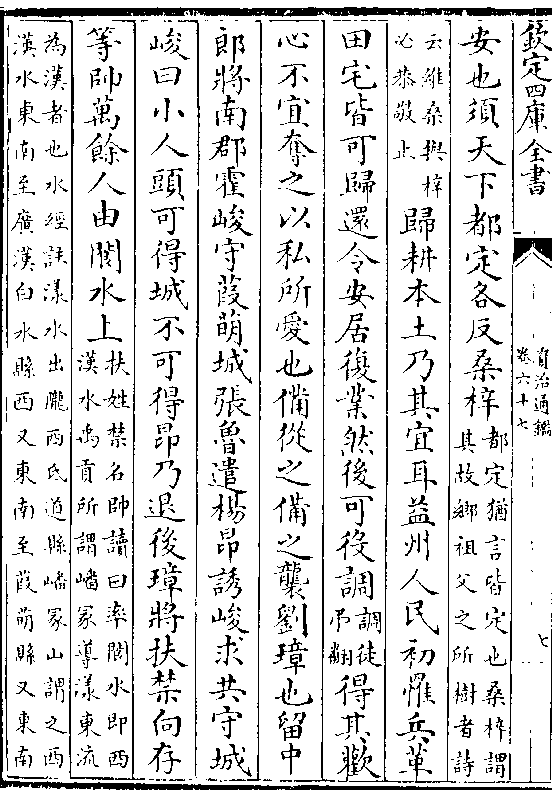 欽定四庫全書
資治通鑑
卷六十七
七
安也須天下都定各反桑梓都定猶言皆定也桑梓謂其故鄉祖父之所樹者詩
云維桑與梓必恭敬止歸耕本土乃其宜耳益州人民初懼兵革
田宅皆可歸還令安居復業然後可役調調徒弔翻得其歡
心不宜奪之以私所愛也備從之備之襲劉璋也留中
郎將南郡霍峻守葭萌城張魯遣楊昂誘峻求共守城
峻曰小人頭可得城不可得昂乃退後璋將扶禁向存
等帥萬餘人由閬水上扶姓禁名帥讀曰率閬水即西漢水禹貢所謂嶓冢導漾東流
為漢者也水經註漾水出隴西氐道縣嶓冢山謂之西漢水東南至廣漢白水縣西又東南至葭萌縣又東南